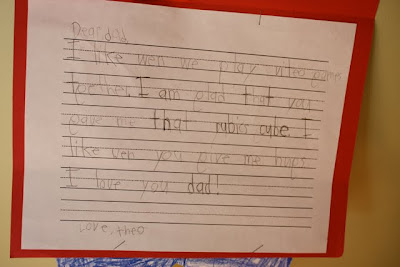 Dear dad
I like wen we play video games
together. I am glad that you
gave me that rubics cube. I
like wen you give me hugs
I love you dad!
Love, theo